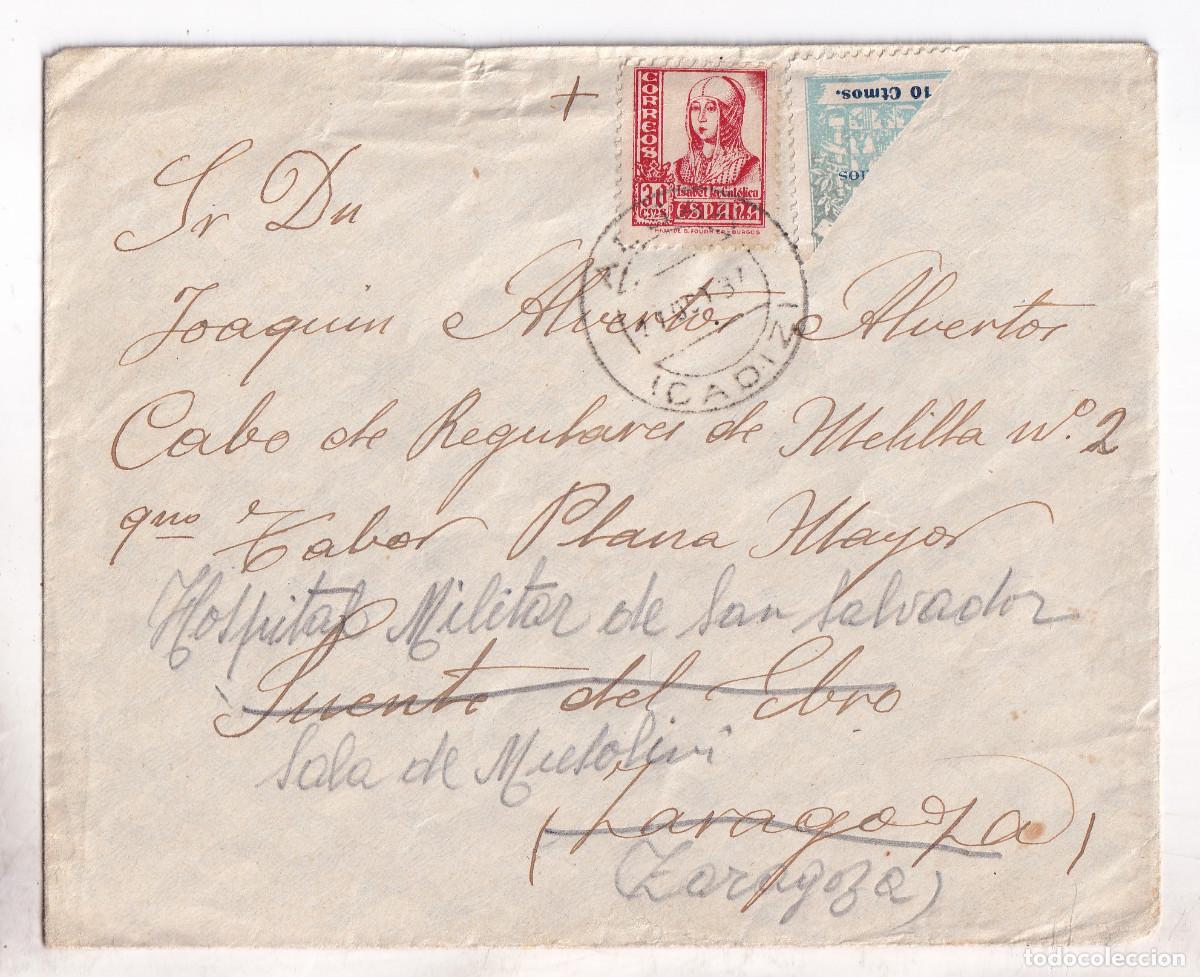 CORREOS
30
CTS
Isabel la Católica
ESPAÑA
HIJA DE B. FOURNIER-BURGOS
10 Ctmos.
(CADIZ)
Sr Dn
Joaquin Alvertos Alvertos
Cabo de Regulares de Melilla nº. 2
Tabor Plana Mayor
Hospital Militar de San Salvador
Fuente del Ebro
Sala de Musolini
(Zaragoza)
(Zaragoza)
todocoleccion